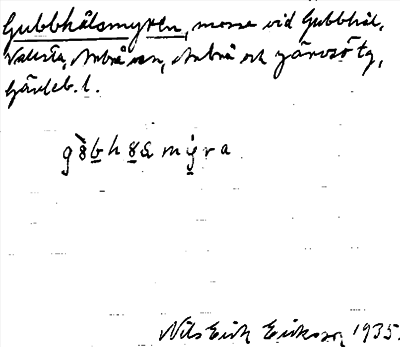 Gubbhålsmyren, mosse vid Gubbhål,
Valsta, Arbrå sn, Arbrå och Järvsö tg,
Gävleb. l.
Nils Erik Eriksson 1935.